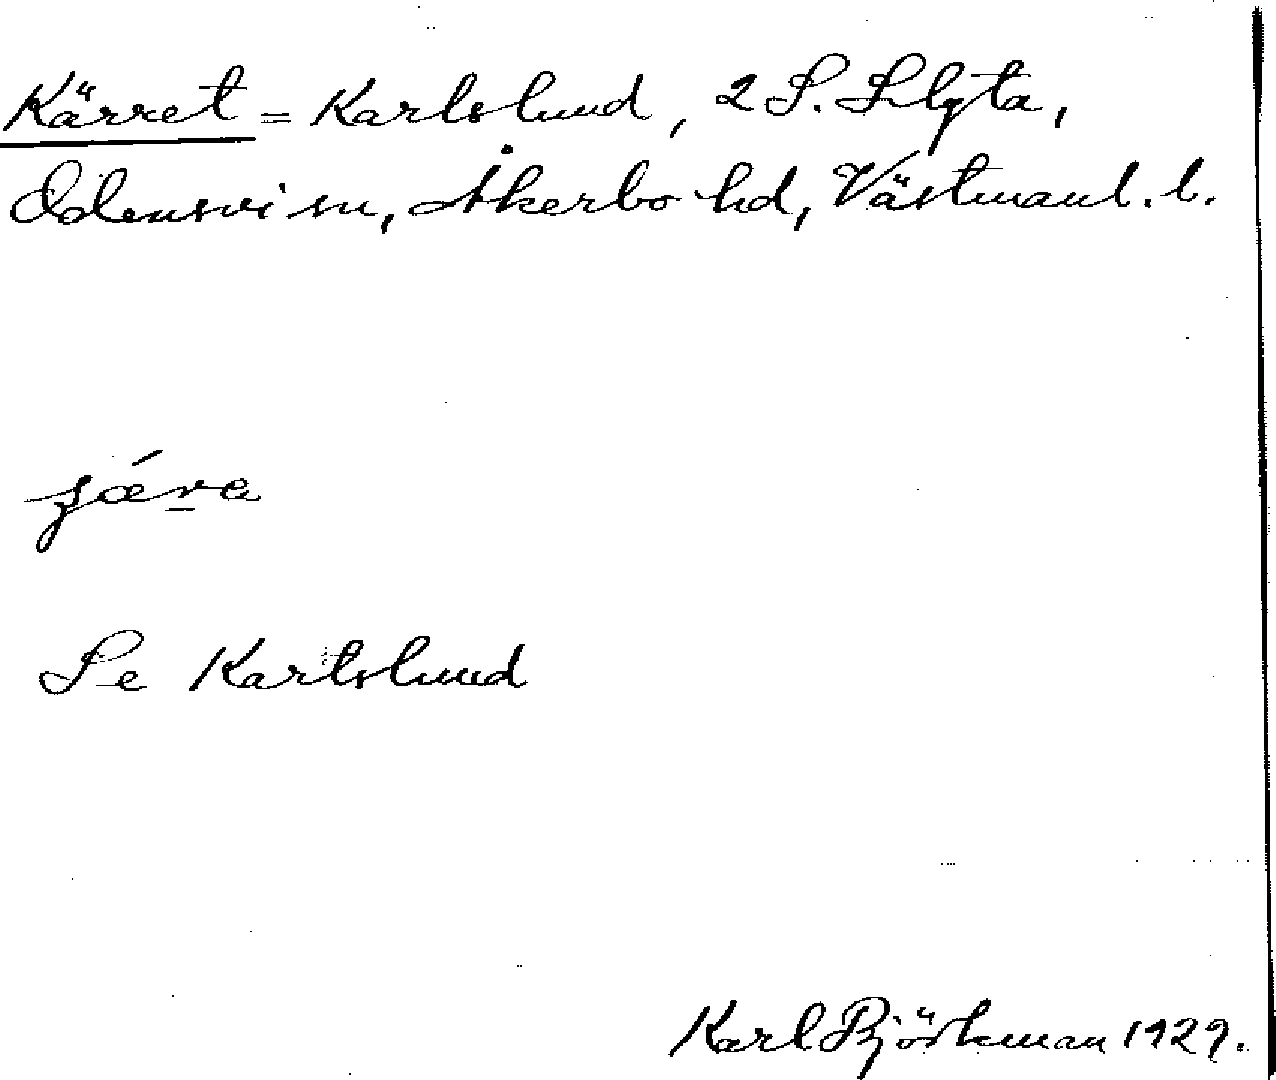 Kärret = Karlslund, 2 S. Slyta,
Odensvi sn, Åkerbo hd, Västmanl. l.
Se Karlslund
Karl Björkman 1929.